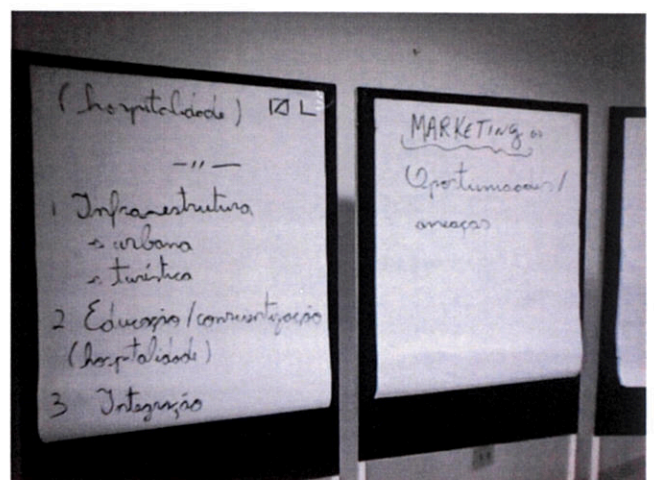 (hospitalidade)
— 11 —
1 Infraestrutura
→ urbana
→ turística
2 Educação/conscientização
(hospitalidade)
3 Integração
MARKETING
Oportunidades/
ameaças